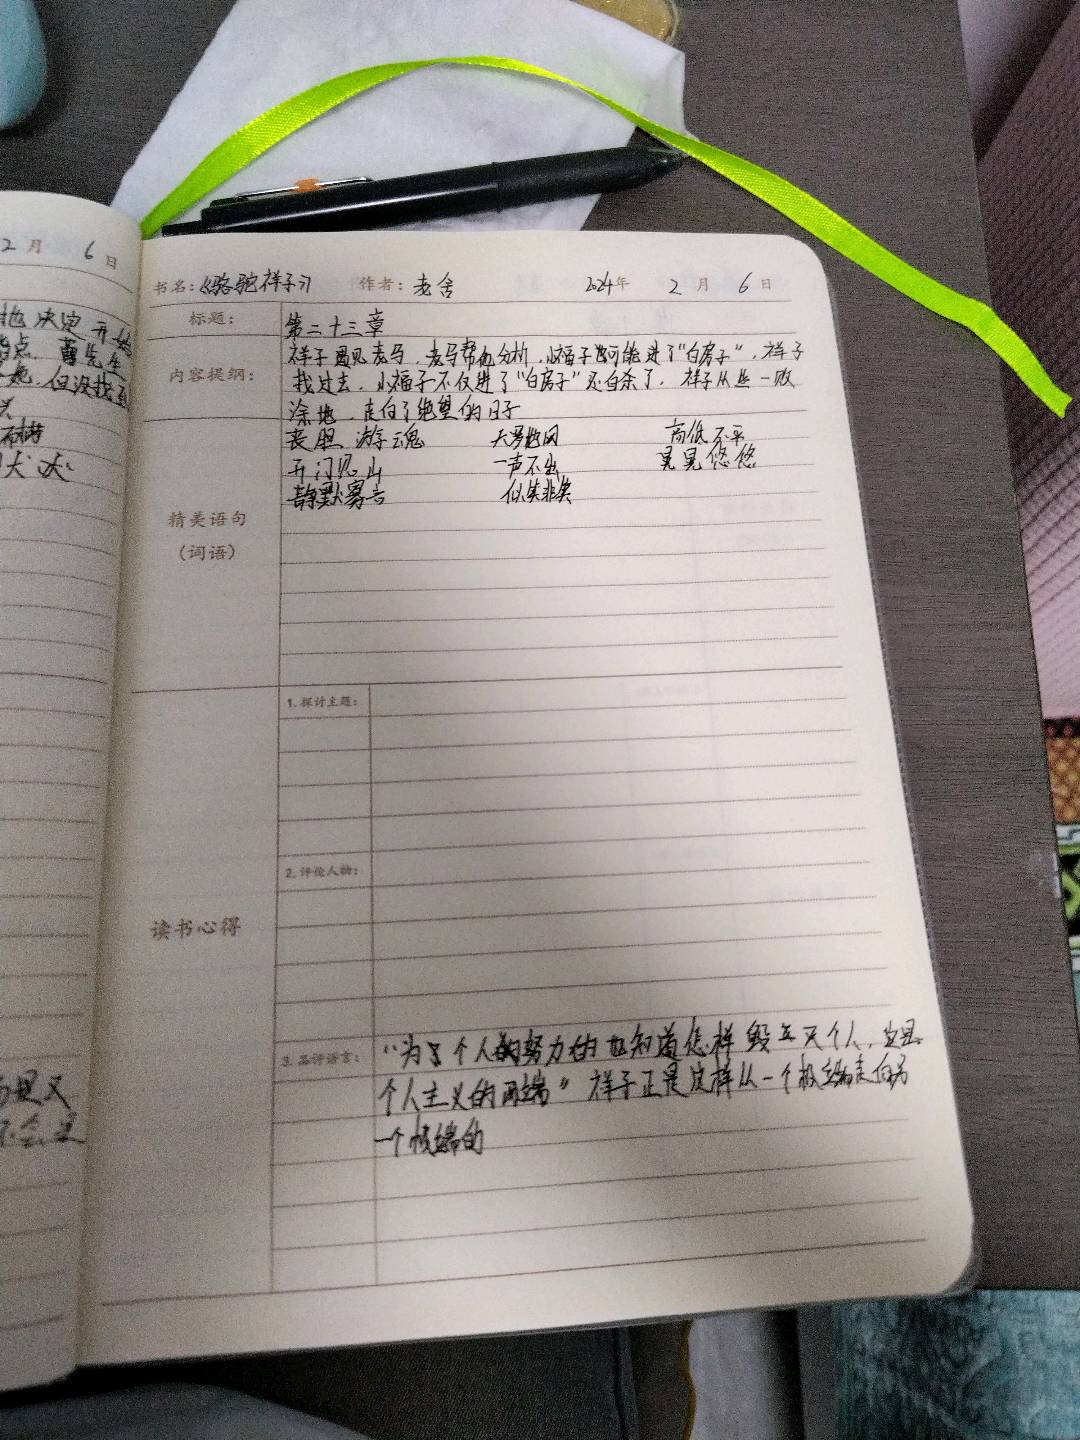 2月 6日
她决定开始
曹先生
她,但没找到
书名:《骆驼祥子》 作者:老舍 2024年 2月 6日
标题: 第二十三章
内容提纲: 祥子遇见老马,老马帮他分析,小福子可能进了“白房子”,祥子
找过去,小福子不仅进了“白房子”还自杀了,祥子从此一败
涂地,走向了绝望的日子
精美语句
(词语)
丧胆游魂 天罗地网 高低不平
开门见山 一声不出 晃晃悠悠
静默寡言 似笑非笑
读书心得
1.探讨主题:
2.评论人物:
3.品评语言: “为个人努力的也知道怎样毁灭个人,这是
个人主义的两端”祥子正是这样从一个极端走向另
一个极端的